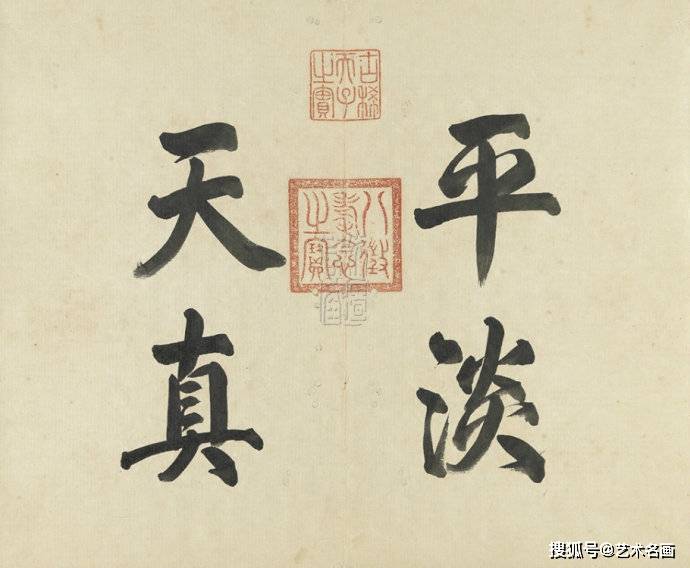 平淡
天真
古稀
天子
之寶
八徵
耄念
之寶
搜狐号@艺术名画